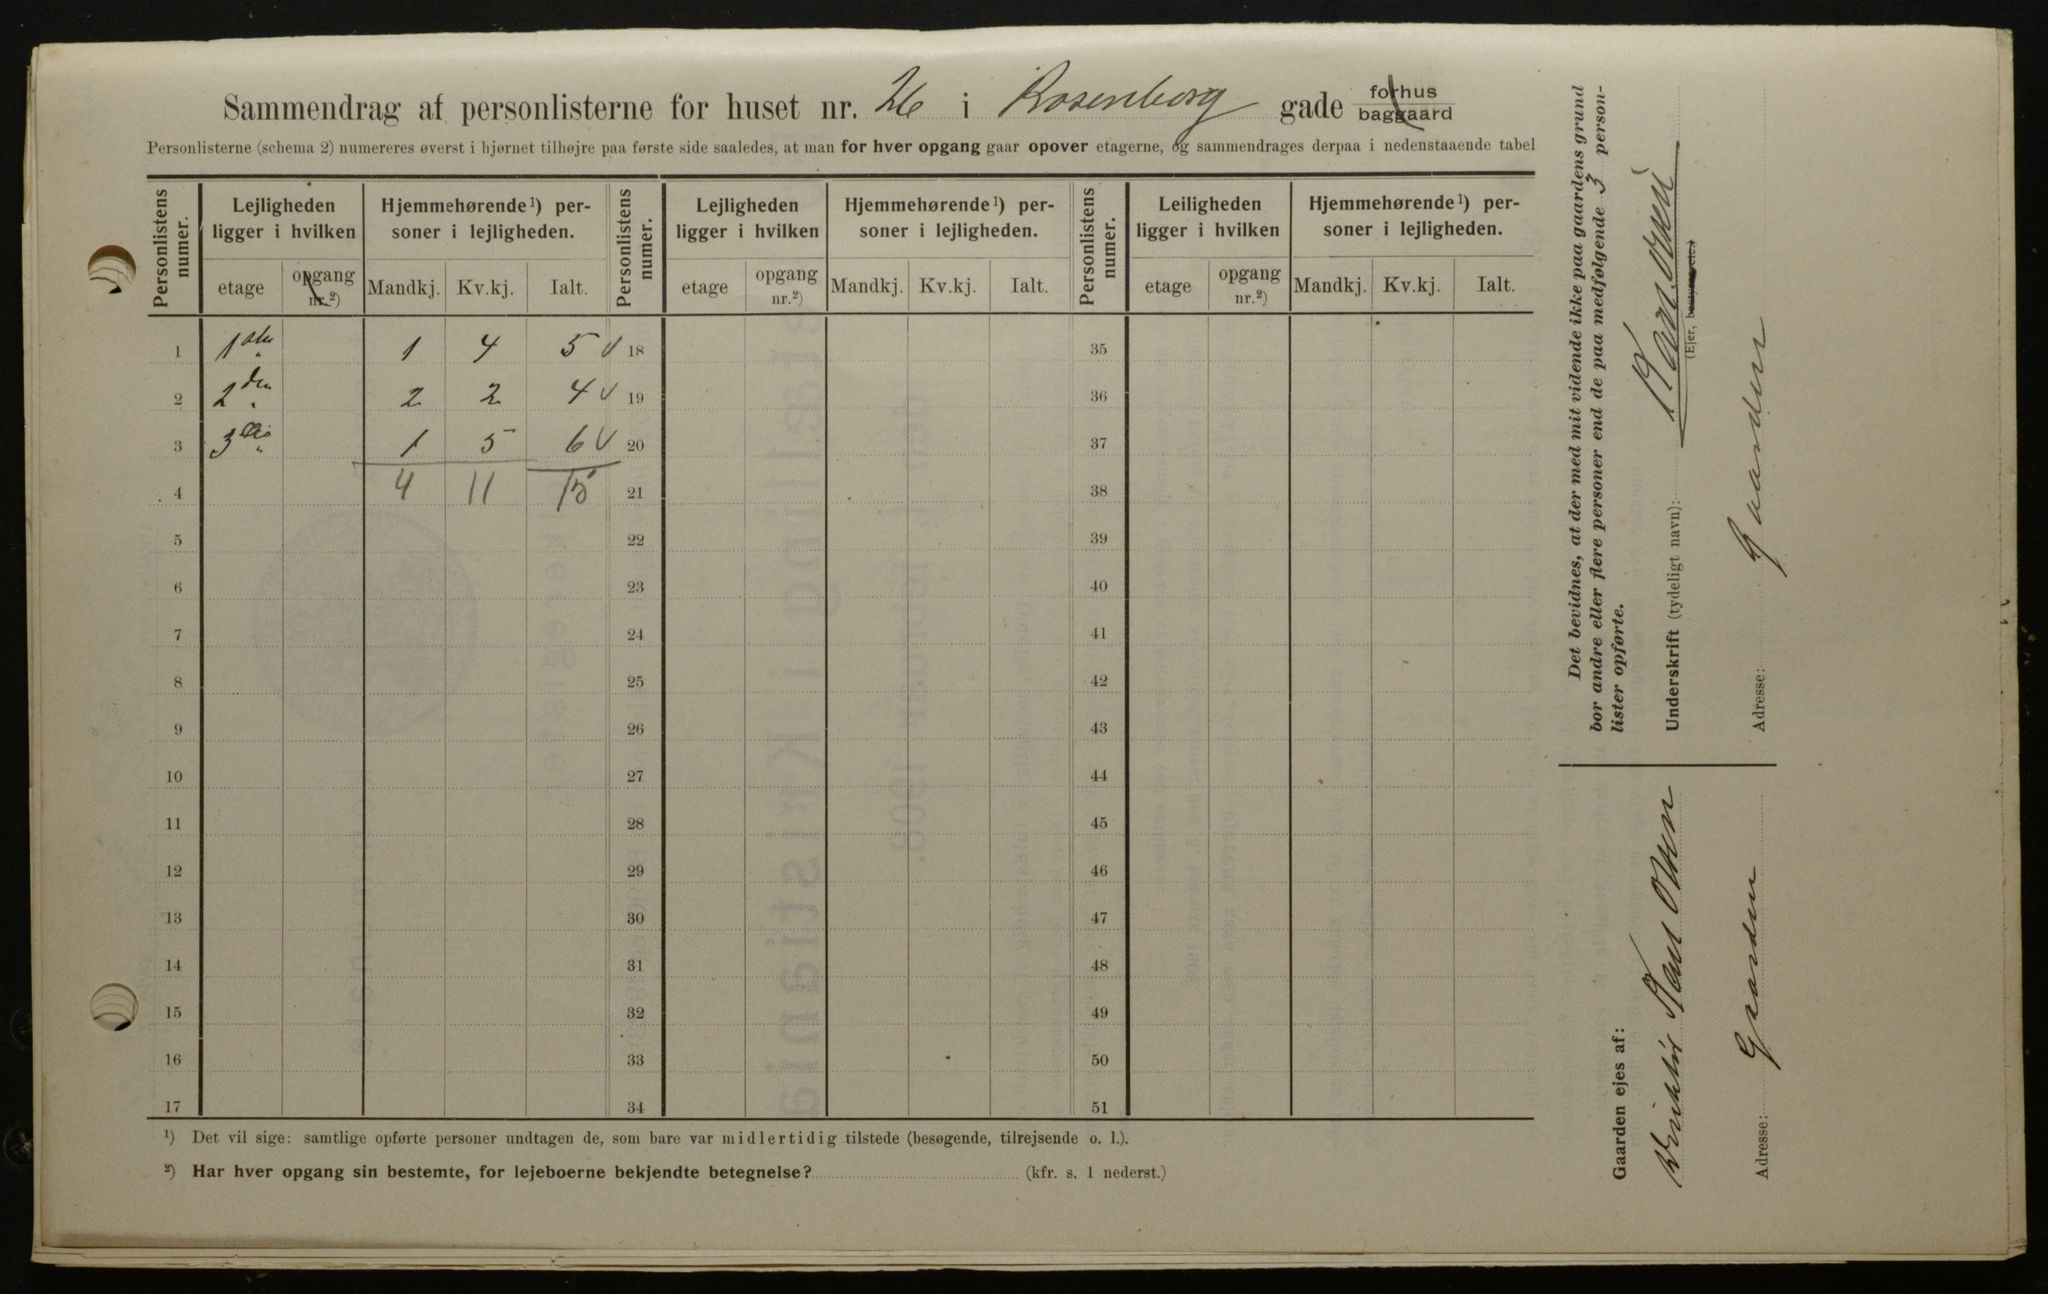 Sammendrag af personlisterne for huset nr. 26 i Rosenborg gade forhus baggaard
Personlisterne (schema 2) numereres øverst i hjørnet tilhøjre paa første side saaledes, at man for hver opgang gaar opover etagerne, og sammendrages derpaa i nedenstaaende tabel
Personlistens numer. Lejligheden ligger i hvilken Hjemmehørende¹) personer i lejligheden. Personlistens numer. Lejligheden ligger i hvilken Hjemmehørende¹) personer i lejligheden. Personlistens numer. Leiligheden ligger i hvilken Hjemmehørende¹) personer i lejligheden.
etage opgang nr.²) Mandkj. Kv.kj. Ialt. etage opgang nr.²) Mandkj. Kv.kj. Ialt. etage opgang nr.²) Mandkj. Kv.kj. Ialt.
1 1ste 1 4 5 v 18 35
2 2den 2 2 4 v 19 36
3 3die 1 5 6 v 20 37
4 4 11 15 21 38
5 22 39
6 23 40
7 24 41
8 25 42
9 26 43
10 27 44
11 28 45
12 29 46
13 30 47
14 31 48
15 32 49
16 33 50
17 34 51
¹) Det vil sige: samtlige opførte personer undtagen de, som bare var midlertidig tilstede (besøgende, tilrejsende o. l.).
²) Har hver opgang sin bestemte, for lejeboerne bekjendte betegnelse? (kfr. s. 1 nederst.)
Det bevidnes, at der med mit vidende ikke paa gaardens grund
bor andre eller flere personer end de paa medfølgende 3 person-
lister opførte.
Underskrift (tydeligt navn): Karl Olsen
(Ejer, bestyrer etc.)
Adresse: Gaarden
Gaarden ejes af:
Karl Olsen
Adresse: Gaarden